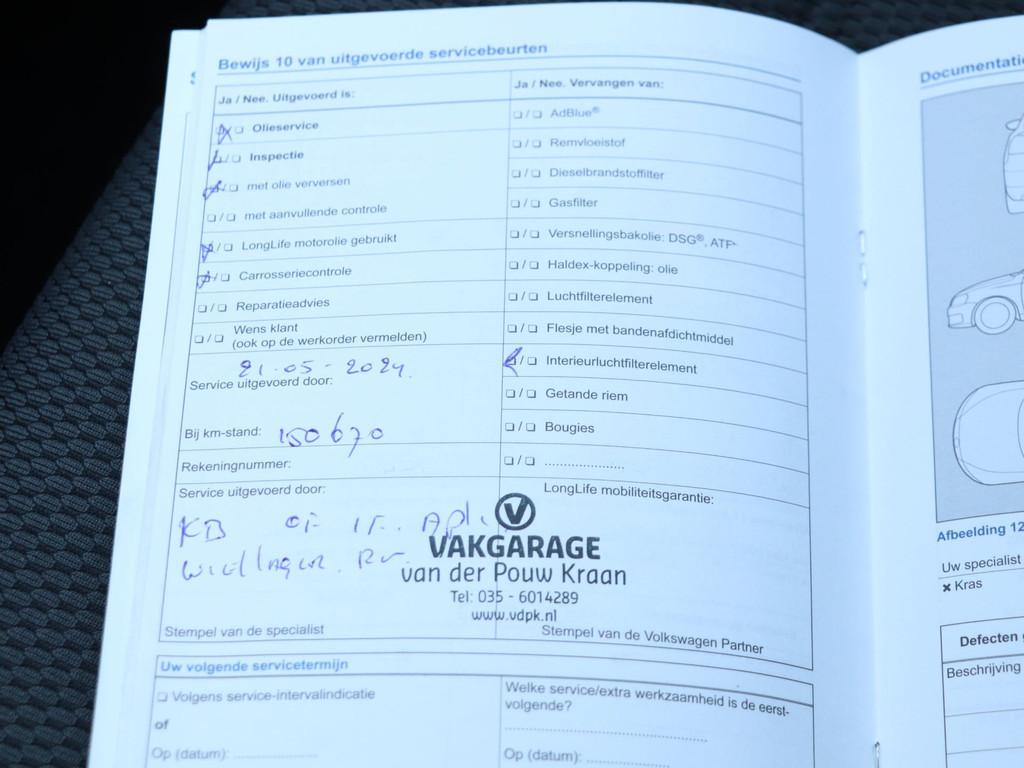 Bewijs 10 van uitgevoerde servicebeurten
Ja / Nee. Uitgevoerd is:
❏ / ❏ Olieservice
❏ / ❏ Inspectie
❏ / ❏ met olie verversen
❏ / ❏ met aanvullende controle
❏ / ❏ LongLife motorolie gebruikt
❏ / ❏ Carrosseriecontrole
❏ / ❏ Reparatieadvies
❏ / ❏ Wens klant
(ook op de werkorder vermelden)
21-05-2024
Service uitgevoerd door:
Bij km-stand: 150670
Rekeningnummer:
Service uitgevoerd door:
KB
Stempel van de specialist
Ja / Nee. Vervangen van:
❏ / ❏ AdBlue®
❏ / ❏ Remvloeistof
❏ / ❏ Dieselbrandstoffilter
❏ / ❏ Gasfilter
❏ / ❏ Versnellingsbakolie: DSG®, ATF
❏ / ❏ Haldex-koppeling: olie
❏ / ❏ Luchtfilterelement
❏ / ❏ Flesje met bandenafdichtmiddel
❏ / ❏ Interieurluchtfilterelement
❏ / ❏ Getande riem
❏ / ❏ Bougies
❏ / ❏ ......................
LongLife mobiliteitsgarantie:
V
VAKGARAGE
van der Pouw Kraan
Tel: 035 - 6014289
www.vdpk.nl
Stempel van de Volkswagen Partner
Uw volgende servicetermijn
❏ Volgens service-intervalindicatie
of
Op (datum): ......................
Welke service/extra werkzaamheid is de eerst-
volgende?
......................
Op (datum): ......................
Documentati
Afbeelding 12
Uw specialist
✖ Kras
Defecten
Beschrijving